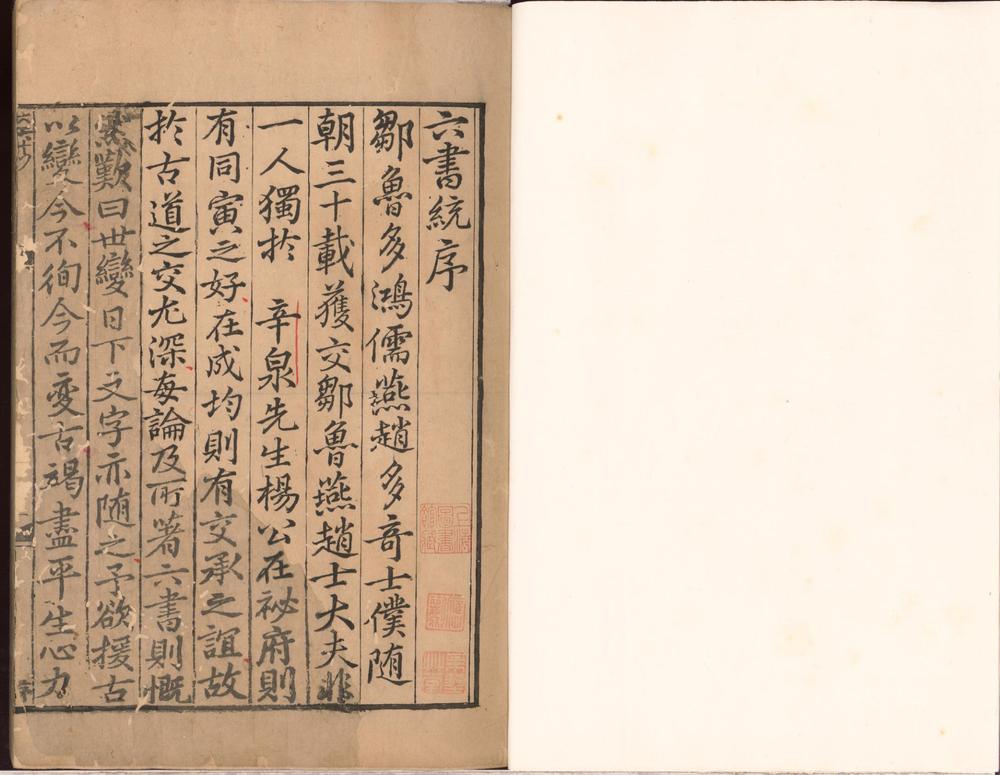 六書統序
鄒魯多鴻儒燕趙多奇士僕随
朝三十載獲交鄒魯燕趙士大夫非
一人獨扵 辛泉先生楊公在祕府則
有同寅之好在成均則有交承之誼故
扵古道之交尤深每論及所著六書則慨
然歎曰世變日下文字亦随之予欲援古
以變今不徇今而變古竭盡平生心力